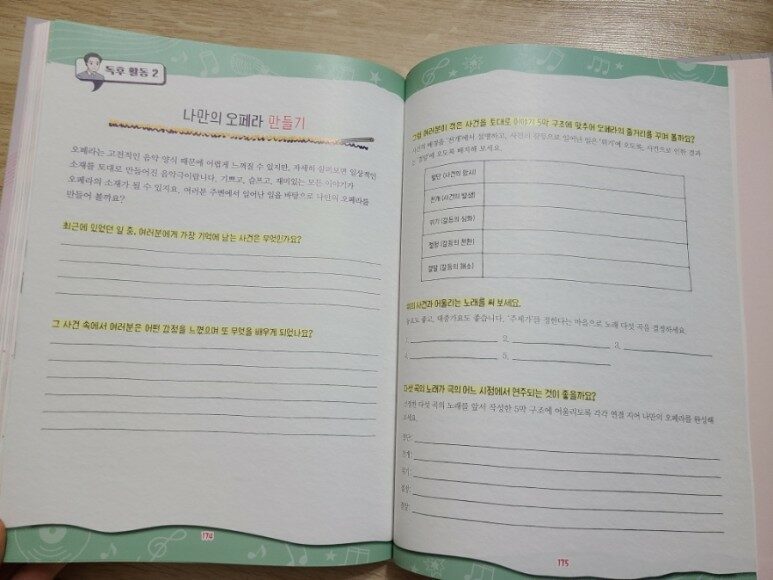 독후 활동 2
나만의 오페라 만들기
오페라는 고전적인 음악 양식 때문에 어렵게 느껴질 수 있지만, 자세히 살펴보면 일상적인
소재를 토대로 만들어진 음악극이랍니다. 기쁘고, 슬프고, 재미있는 모든 이야기가
오페라의 소재가 될 수 있지요. 여러분 주변에서 일어난 일을 바탕으로 나만의 오페라를
만들어 볼까요?
최근에 있었던 일 중, 여러분에게 가장 기억에 남는 사건은 무엇인가요?
그 사건 속에서 여러분은 어떤 감정을 느꼈으며 또 무엇을 배우게 되었나요?
174
여러분이 적은 사건을 토대로 이야기 5막 구조에 맞추어 오페라의 줄거리를 꾸며 볼까요?
사건의 배경을 '전개'에서 설명하고, 사건의 갈등으로 일어난 일은 '위기'에 오도록, 사건으로 인한 결과
는 '절정'에 오도록 배치해 보세요.
발단 (사건의 암시)
전개 (사건의 발생)
위기 (갈등의 심화)
절정 (갈등의 전환)
결말 (갈등의 해소)
사건과 어울리는 노래를 써 보세요.
좋고, 대중가요도 좋습니다. '주제가'를 정한다는 마음으로 노래 다섯 곡을 결정하세요
1. 2. 3.
4. 5.
다섯 곡의 노래가 극의 어느 시점에서 연주되는 것이 좋을까요?
다섯 곡의 노래를 앞서 작성한 5막 구조에 어울리도록 각각 연결 지어 나만의 오페라를 완성해
보세요.
발단:
전개:
위기:
절정:
결말:
175